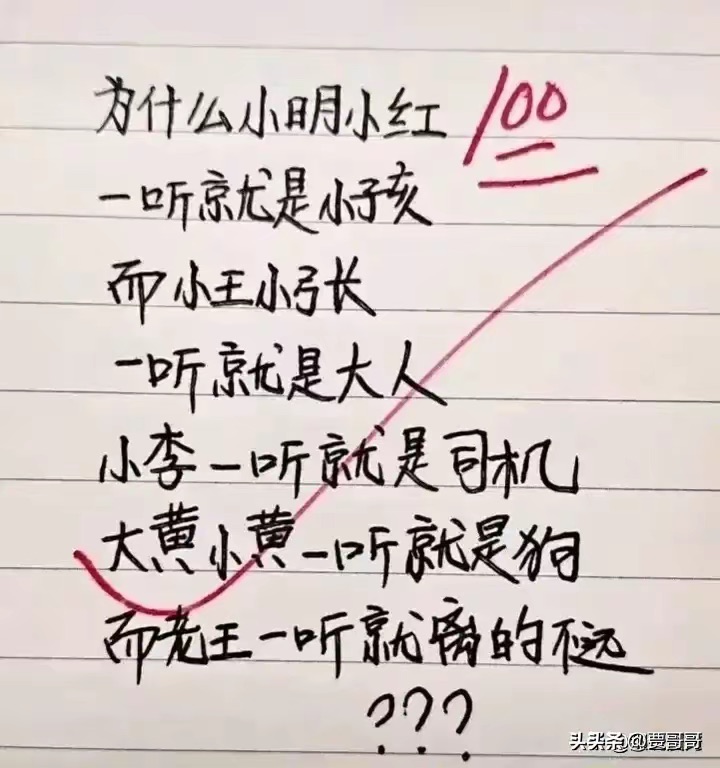 为什么小明小红
100
一听就是小孩
而小王小张
一听就是大人
小李一听就是司机
大黄小黄一听就是狗
而老王一听就离的不远
???
头条@贾哥哥